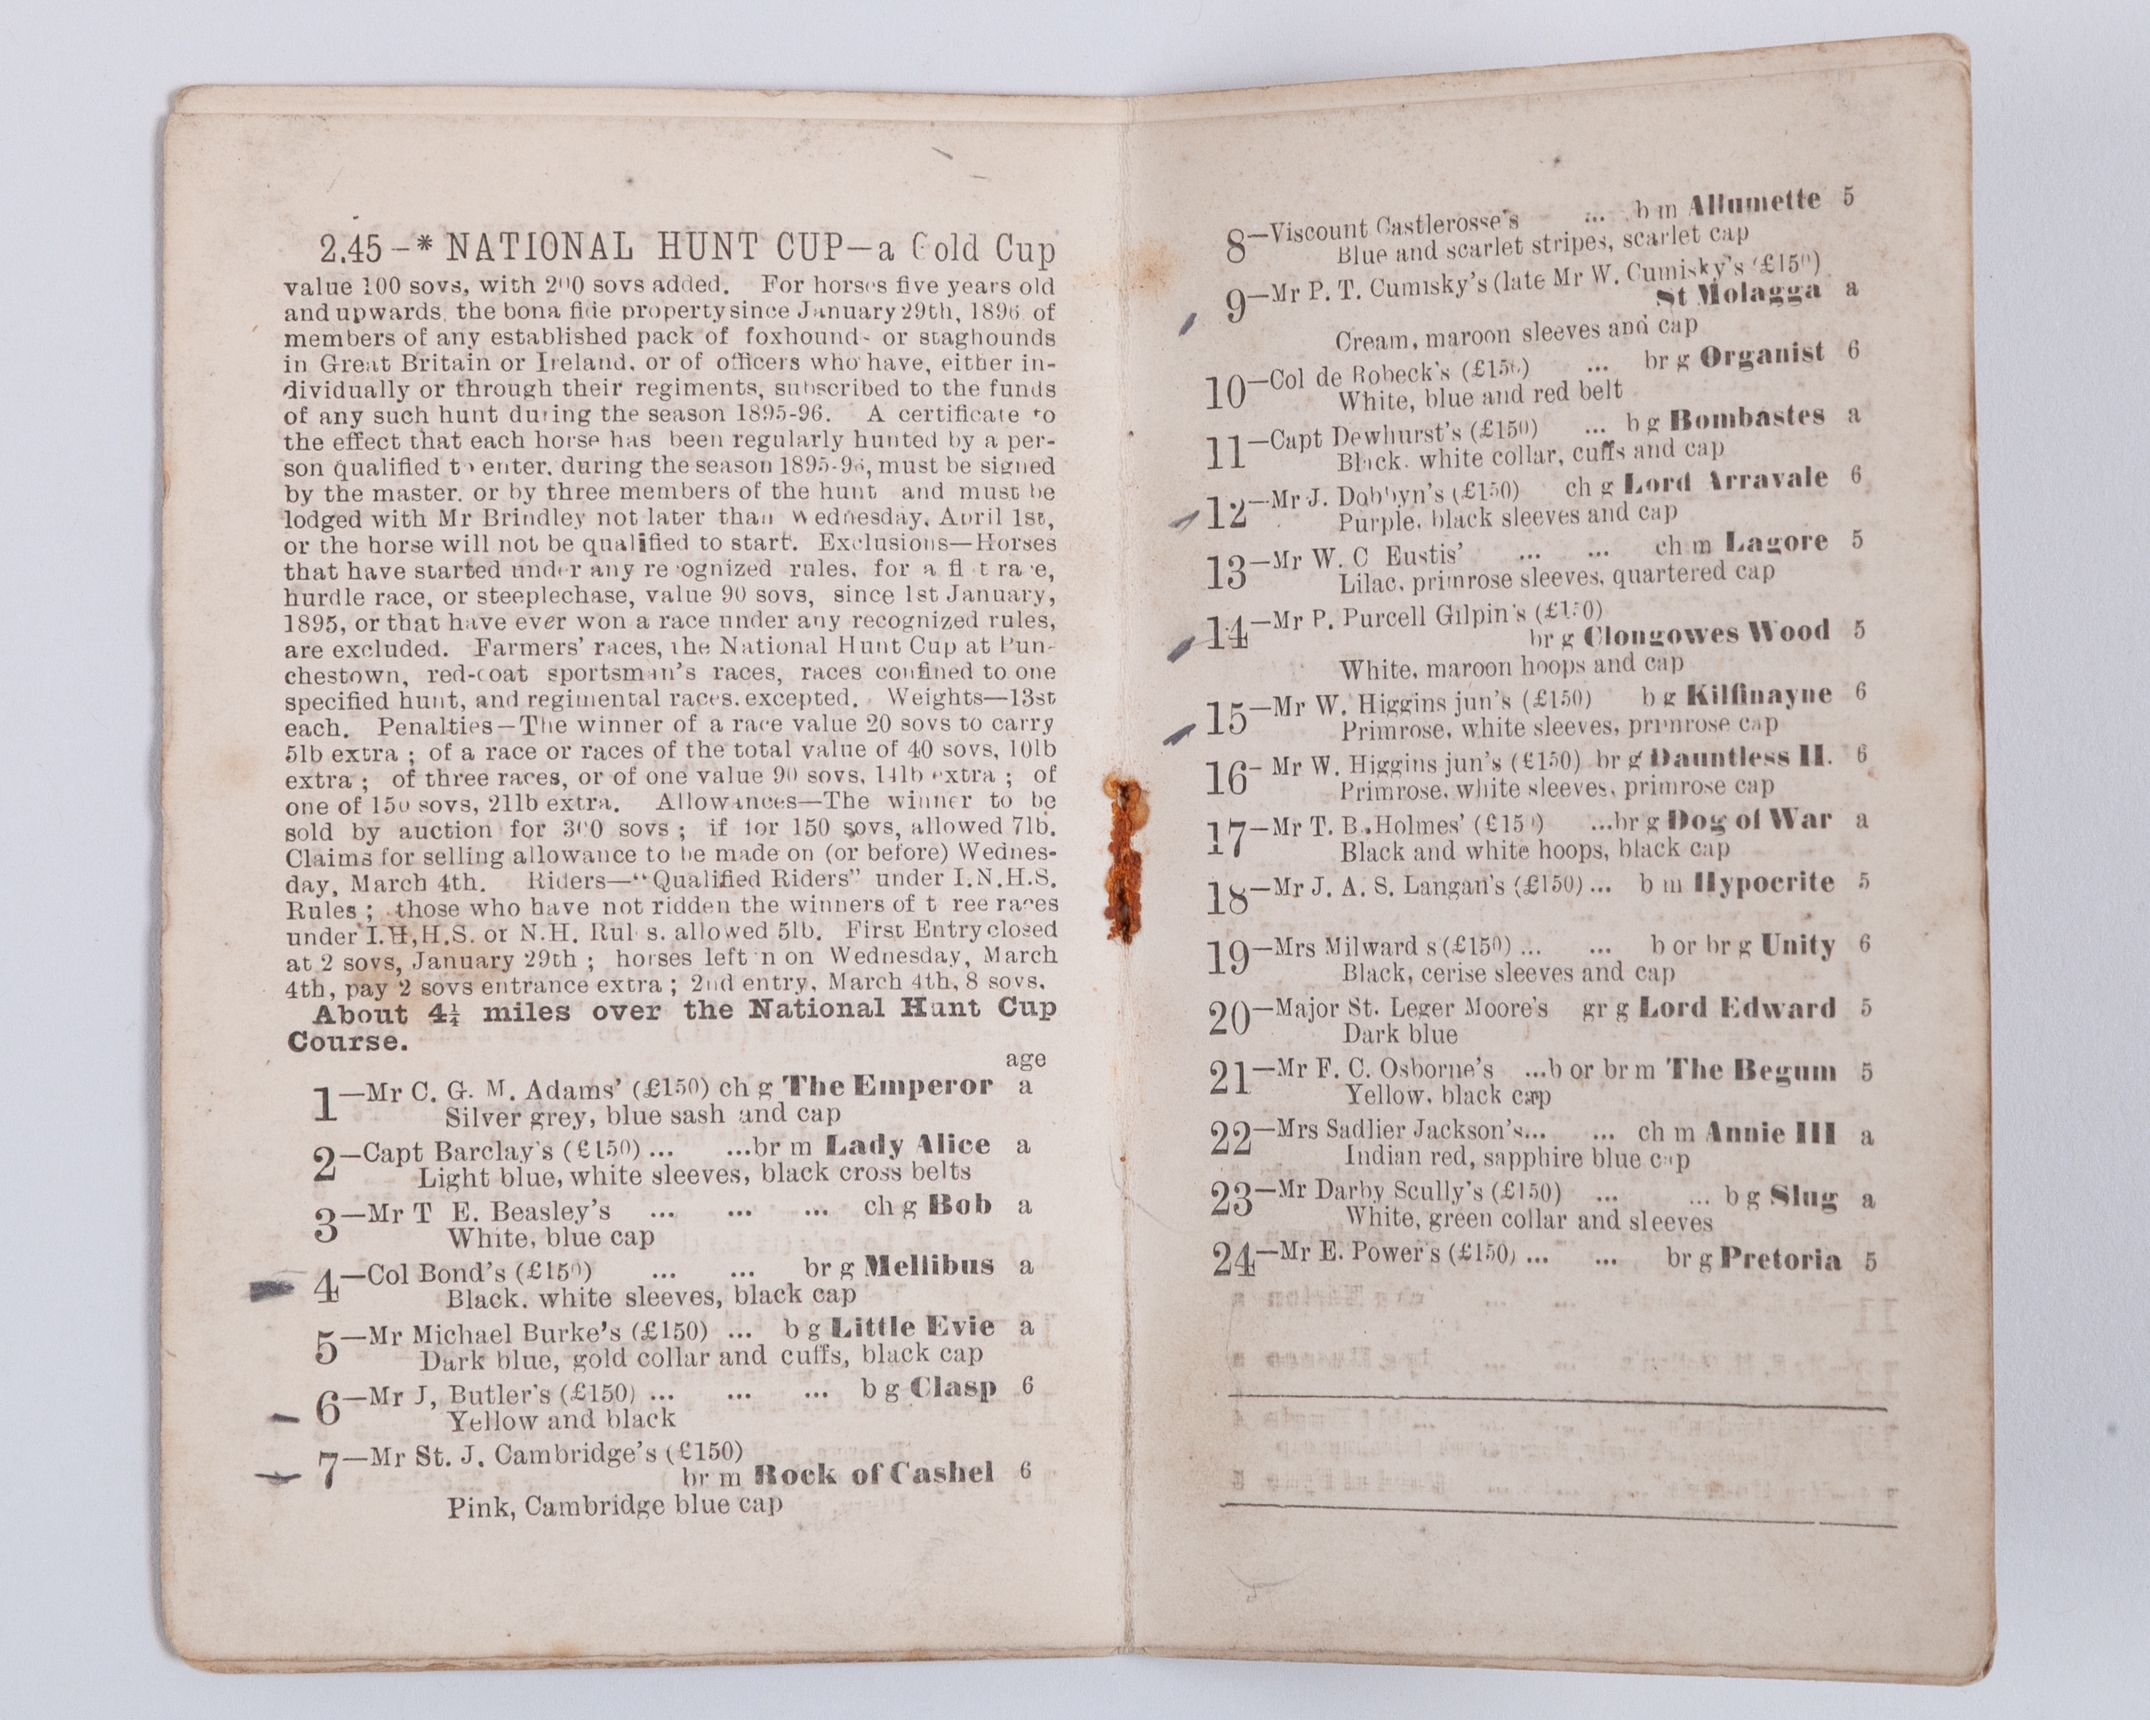 2.45-* NATIONAL HUNT CUP—a Gold Cup
value 100 sovs, with 200 sovs added. For horses five years old
and upwards, the bona fide property since January 29th, 1896 of
members of any established pack of foxhound- or staghounds
in Great Britain or Ireland, or of officers who have, either in-
dividually or through their regiments, subscribed to the funds
of any such hunt during the season 1895-96. A certificate to
the effect that each horse has been regularly hunted by a per-
son qualified to enter, during the season 1895-96, must be signed
by the master, or by three members of the hunt and must be
lodged with Mr Brindley not later than Wednesday, April 1st,
or the horse will not be qualified to start. Exclusions—Horses
that have started under any recognized rules, for a flat race,
hurdle race, or steeplechase, value 90 sovs, since 1st January,
1895, or that have ever won a race under any recognized rules,
are excluded. Farmers' races, the National Hunt Cup at Pun-
chestown, red-coat sportsman's races, races confined to one
specified hunt, and regimental races, excepted. Weights—13st
each. Penalties—The winner of a race value 20 sovs to carry
5lb extra ; of a race or races of the total value of 40 sovs, 10lb
extra ; of three races, or of one value 90 sovs, 14lb extra ; of
one of 150 sovs, 21lb extra. Allowances—The winner to be
sold by auction for 300 sovs ; if for 150 sovs, allowed 7lb.
Claims for selling allowance to be made on (or before) Wednes-
day, March 4th. Riders—"Qualified Riders" under I.N.H.S.
Rules ; those who have not ridden the winners of three races
under I.H,H.S. or N.H. Rules. allowed 5lb. First Entry closed
at 2 sovs, January 29th ; horses left in on Wednesday, March
4th, pay 2 sovs entrance extra ; 2nd entry, March 4th, 8 sovs.
About 4¼ miles over the National Hunt Cup
Course.
age
1—Mr C. G. M. Adams' (£150) ch g The Emperor a
Silver grey, blue sash and cap
2—Capt Barclay's (£150) ... ...br m Lady Alice a
Light blue, white sleeves, black cross belts
3—Mr T E. Beasley's ... ... ... ch g Bob a
White, blue cap
4—Col Bond's (£150) ... ... br g Mellibus a
Black. white sleeves, black cap
5—Mr Michael Burke's (£150) ... b g Little Evie a
Dark blue, gold collar and cuffs, black cap
6—Mr J, Butler's (£150) ... ... ... b g Clasp 6
Yellow and black
7—Mr St. J. Cambridge's (£150)
br m Rock of Cashel 6
Pink, Cambridge blue cap
8—Viscount Castlerosse's ... b m Allumette 5
Blue and scarlet stripes, scarlet cap
9—Mr P. T. Cumisky's (late Mr W. Cumisky's (£150)
St Molagga a
Cream, maroon sleeves and cap
10—Col de Robeck's (£150) ... br g Organist 6
White, blue and red belt
11—Capt Dewhurst's (£150) ... b g Bombastes a
Black. white collar, cuffs and cap
12—Mr J. Dobbyn's (£150) ch g Lord Arravale 6
Purple, black sleeves and cap
13—Mr W. C Eustis' ... ... ch m Lagore 5
Lilac, primrose sleeves, quartered cap
14—Mr P. Purcell Gilpin's (£150)
br g Clongowes Wood 5
White, maroon hoops and cap
15—Mr W. Higgins jun's (£150) b g Kilfinayne 6
Primrose, white sleeves, primrose cap
16- Mr W. Higgins jun's (£150) br g Dauntless II. 6
Primrose, white sleeves, primrose cap
17—Mr T. B. Holmes' (£150) ...br g Dog of War a
Black and white hoops, black cap
18—Mr J. A. S. Langan's (£150)... b m Hypocrite 5
19—Mrs Milward s (£150) ... ... b or br g Unity 6
Black, cerise sleeves and cap
20—Major St. Leger Moore's gr g Lord Edward 5
Dark blue
21—Mr F. C. Osborne's ...b or br m The Begum 5
Yellow, black cap
22—Mrs Sadlier Jackson's... ... ch m Annie III a
Indian red, sapphire blue cap
23—Mr Darby Scully's (£150) ... ... b g Slug a
White, green collar and sleeves
24—Mr E. Power's (£150) ... ... br g Pretoria 5